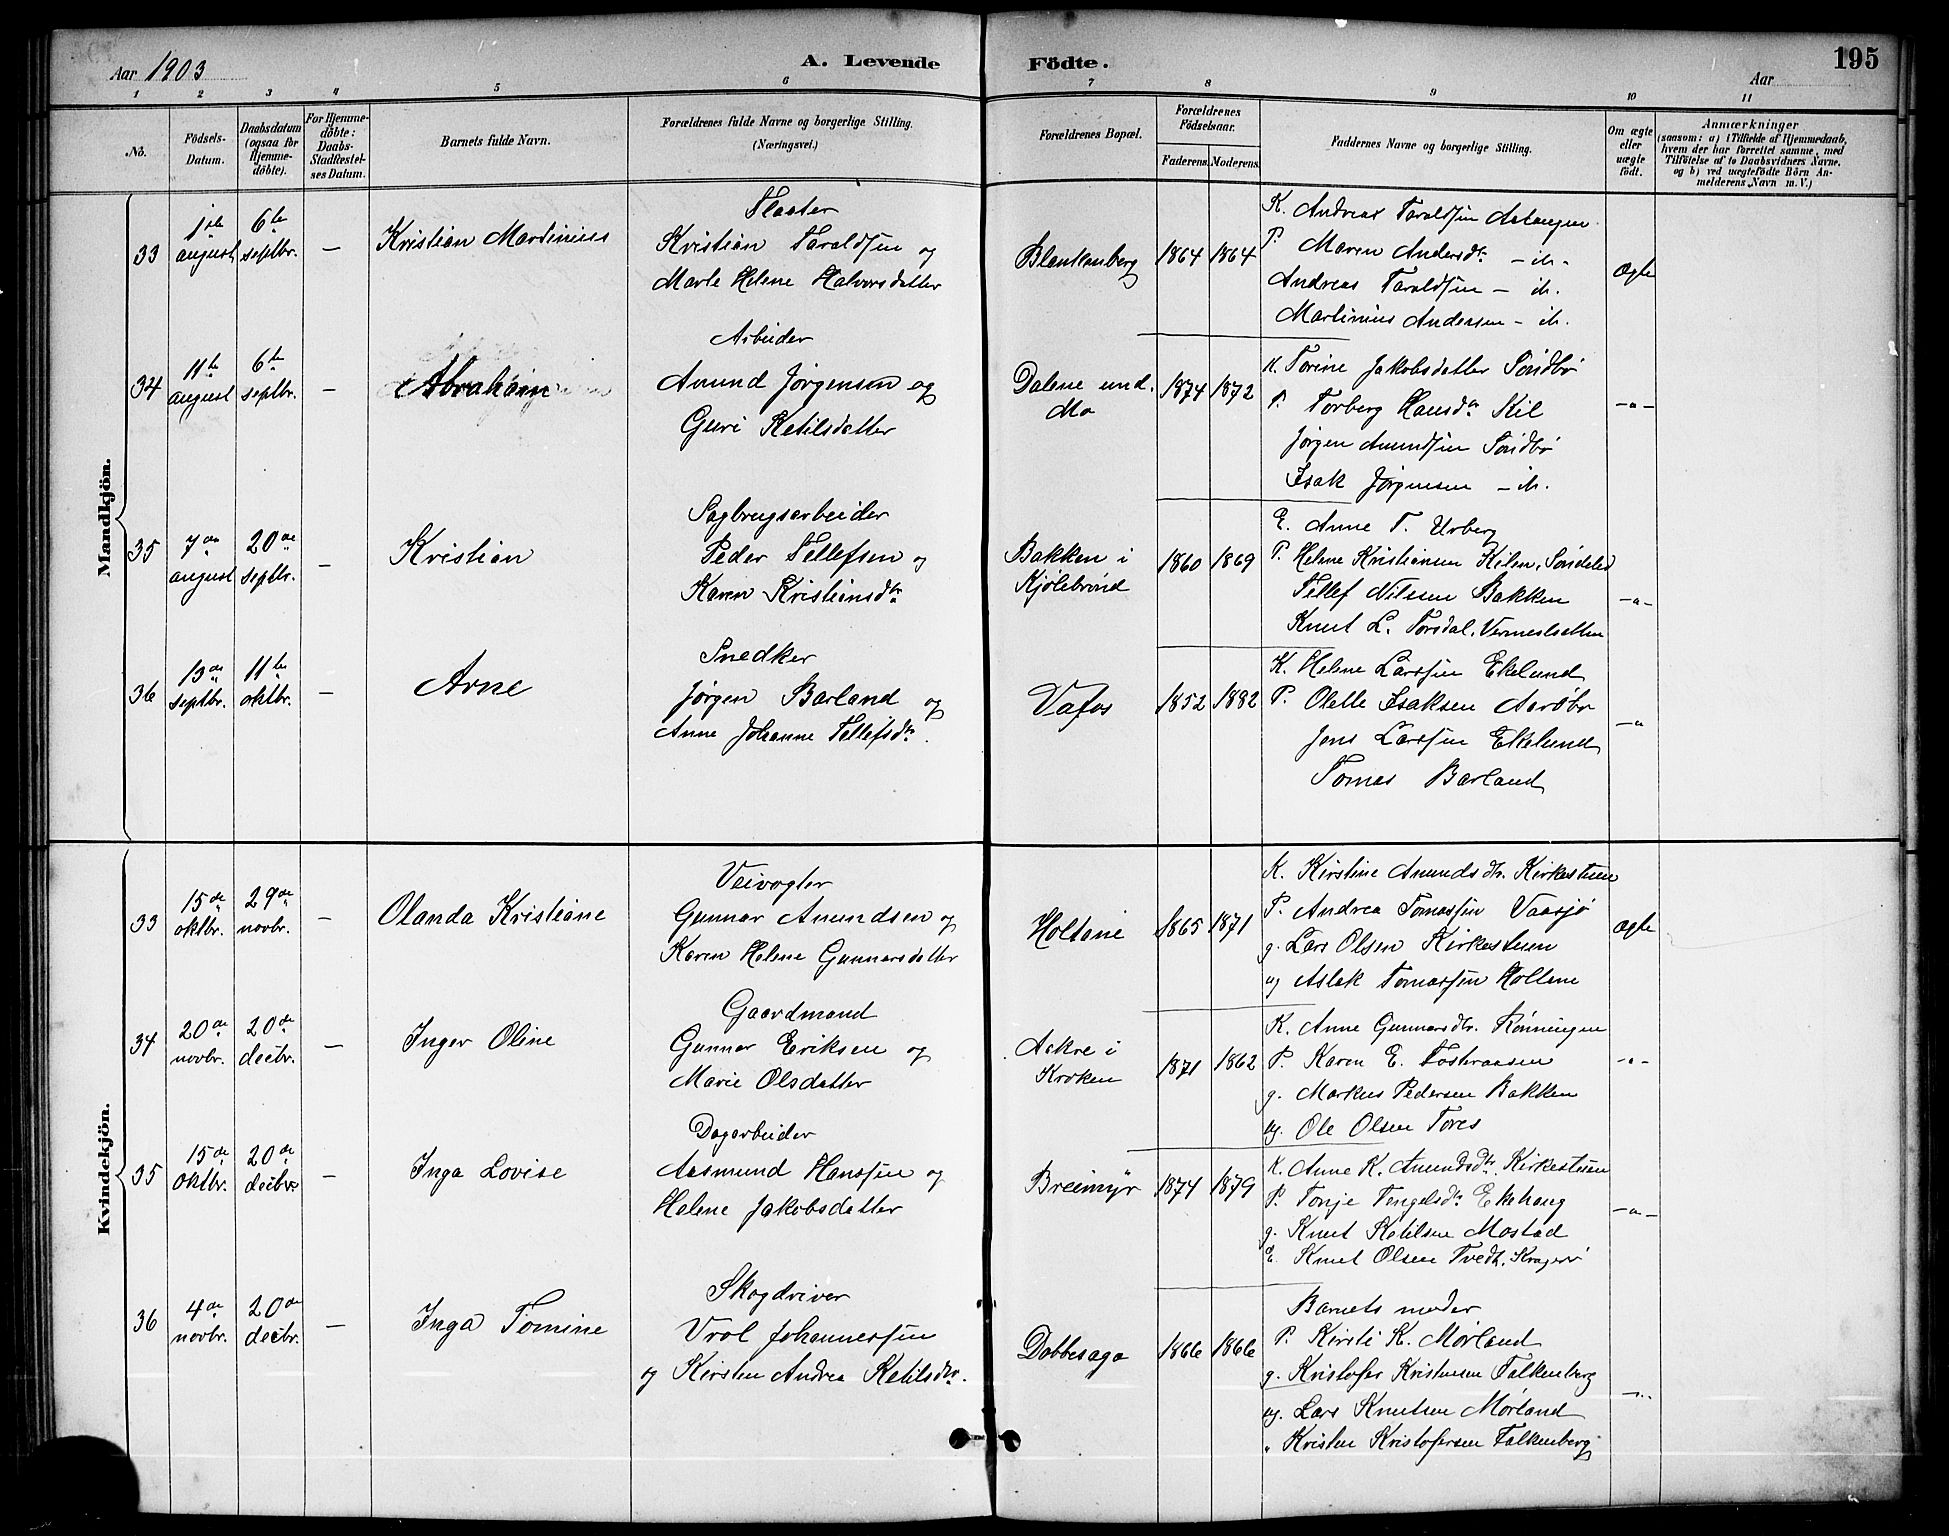 Aar 1903
A. Levende Födte.
Aar
195
1 2 3 4 5 6 7 8 9 10 11
No.
Födsels-Datum.
Daabsdatum (ogsaa for Hjemme-döbte).
For Hjemme-döbte: Daabs-Stadfæstel-ses Datum.
Barnets fulde Navn.
Forældrenes fulde Navne og borgerlige Stilling. (Næringsvei.)
Forældrenes Bopæl.
Forældrenes Födselsaar.
Faderens. Moderens.
Faddernes Navne og borgerlige Stilling.
Om ægte eller uægte födt.
Anmærkninger
(saasom: a) i Tilfælde af Hjemmedaab, hvem der har forrettet samme, med Tilföielse af to Daabsvidners Navne, og b) ved uægtefödte Börn An-melderens Navn m. V.)
Mandkjön.
33
1ste august
6te septbr.
—
Kristian Martinius
Slaater
Kristian Taraldsen og
Marte Helene Halvorsdatter
Blankenberg
1864 1864
K. Andreas Taraldsen Aslangen
P. Maren Andersdtr — ib.
Andreas Taraldsen — ib.
Martinius Andersen — ib.
Ægte
34
11te august
6te septbr.
—
Abraham
Arbeider
Amund Jørgensen og
Guri Ketilsdatter
Dalene und. Mo
1874 1872
K. Torine Jakobsdatter Söndbö
P. Torberg Hansdtr Kil
Jørgen Amundsen Söndbö
Isak Jørgensen — ib.
— " —
35
7de august
20de septbr.
—
Kristian
Sagbrugsarbeider
Peder Tellefsen og
Karen Kristiansdtr
Bakken i Kjölebrönd
1860 1869
E. Anne T. Urberg
P. Helene Kristiansen Kilen, Söndeled
Tellef Nilssen Bakken
Knut L. Torsdal, Vermestsetten
— " —
36
13de septbr.
11te oktbr.
—
Arne
Snedker
Jørgen Barland og
Anne Johanne Tellefsdtr.
Vafos
1852 1882
K. Helene Larssen Ekelund
P. Olette Isaksen Aaröbr
Jens Larssen Ekelund
Tomas Barland
— "
Kvindekjön.
33
15de oktbr.
29de novbr.
—
Olanda Kristiane
Veivogter
Gunnar Amundsen og
Karen Helene Gunnarsdatter
Holtane
1865 1871
K. Kirstine Amundsdtr. Kirkestuen
P. Andrea Tomassen Vaasjö
g. Lars Olsen Kirkestuen
ug. Aslak Tomassen Holtane
Ægte
34
20de novbr.
20de decbr.
—
Inger Oline
Gaardmand
Gunnar Eriksen og
Marie Olsdatter
Aakre i Kroken
1871 1862
K. Anne Gunnarsdtr. Rönningen
P. Karen E. Fosteraasen
g. Markus Pedersen Bakken
ug. Ole Olsen Tores
— " —
35
15de oktbr.
20de decbr.
—
Inga Lovise
Dagarbeider
Aasmund Hanssen og
Helene Jakobsdatter
Breimyr
1874 1879
K. Anne K. Amundsdtr. Kirkestuen
P. Tonje Tengelsdtr Ekehaug
g. Knut Ketilsen Mostad
E. Knut Olsen Tvedt, Kragerö
— " —
36
4de novbr.
20de decbr.
—
Inga Tomine
Skogdriver
Vrol Johannessen
og Kirsten Andrea Ketilsdtr.
Dobbesaga
1866 1866
Barnets moder
P. Kirsti K. Mørland
g. Kristofer Kristensen Falkenberg
ug. Lars Knutsen Mørland
" Kristen Kristofersen Falkenberg
— " —